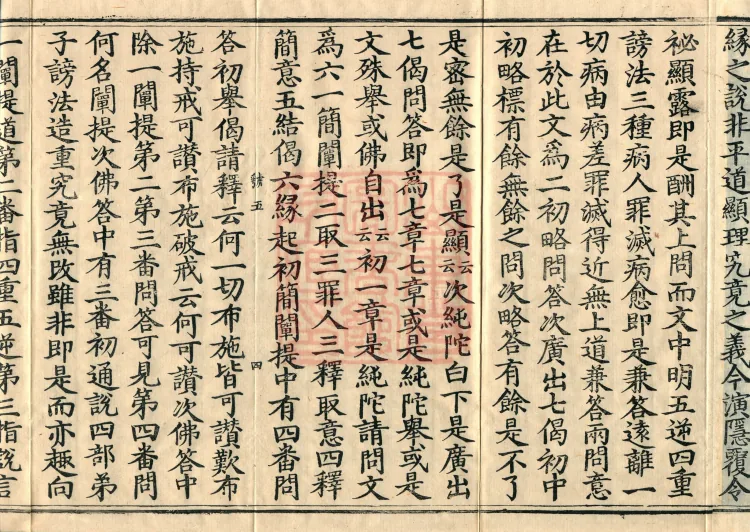 緣之說非平道顯理究竟之義今演隱覆令
祕顯露即是酬其上問而文中明五逆四重
謗法三種病人罪滅病愈即是兼答遠離一
切病由病差罪滅得近無上道兼答兩問意
在於此文爲二初略問答次廣出七偈初中
初略標有餘無餘之問次略答有餘是不了
是密無餘是了是顯云云次純陀白下是廣出
七偈問答即爲七章七章或是純陀舉或是
文殊舉或佛自出云云初一章是純陀請問文
爲六一簡闡提二取三罪人三釋取意四釋
簡意五結偈六緣起初簡闡提中有四番問
號五
四
答初舉偈請釋云何一切布施皆可讃歎布
施持戒可讃布施破戒云何可讃次佛答中
除一闡提第二第三番問答可見第四番問
何名闡提次佛答中有三番初通説四部弟
子謗法造重究竟無改雖非即是而亦趣向
一闡提道第二番指四重五逆第三指説言